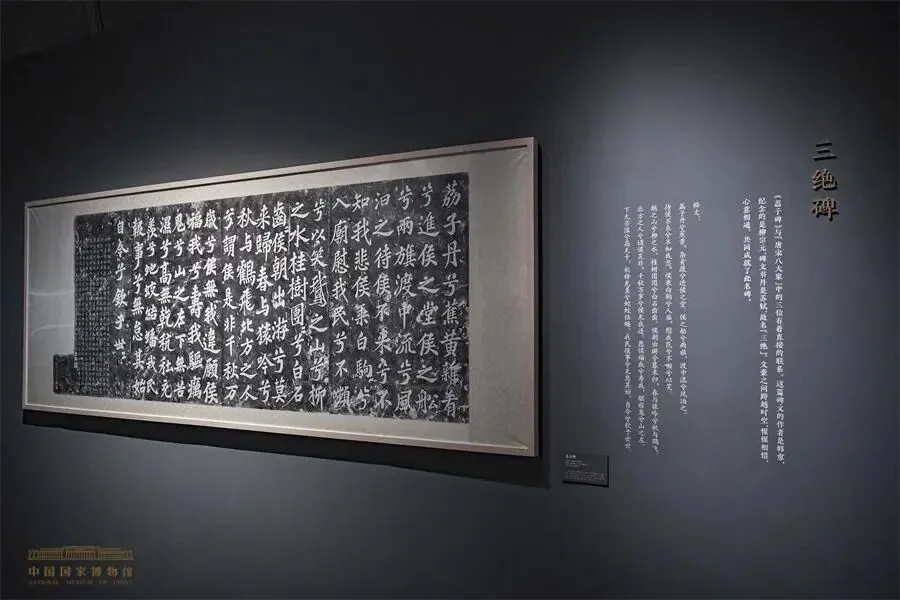 三绝碑
《荔子碑》与“唐宋八大家”中的三位有着直接的联系。这篇碑文的作者是韩愈，
纪念的是柳宗元，碑文书丹是苏轼，故名“三绝”。文豪之间跨越时空、惺惺相惜，
心意相通，共同成就了此名碑。
释文：
荔子丹兮蕉黄，杂肴蔬兮进侯之堂。侯之船兮两旗，渡中流兮风汩之。
待侯不来兮不知我悲。侯乘白驹兮入庙，慰我民兮不嚬兮以笑。
鹅之山兮柳之水，桂树团团兮白石齿齿。侯朝出游兮暮来归，春与猿吟兮秋与鹤飞。
北方之人兮谓侯是非。千秋万岁兮侯无我违。愿侯福我兮寿我，驱厉鬼兮山之左。
下无苦湿兮高无干，秔稌充羡兮蛇蛟结蟠。我民报事兮无怠其始，自今兮钦于世世。
荔子丹兮蕉黄雜肴
兮進侯之堂侯之船
兮兩旗渡中流兮風
汩之待侯不来兮不
知我悲侯乘白駒兮
入廟慰我民兮不嚬
兮以笑鵞之山兮柳
之水桂樹團兮白石
齒侯朝出游兮莫
来歸春与猨吟兮
秋与鶴飛北方之人
兮謂侯是非千秋万
歲兮侯無我違願侯
福我兮壽我驅癘
鬼兮山之左下無苦
濕兮高無乾秔稌充
羡兮蛇蛟結蟠我民
報事兮無怠其始
自今兮欽于世世
荔子碑
中国国家博物馆
NATIONAL MUSEUM OF CHINA